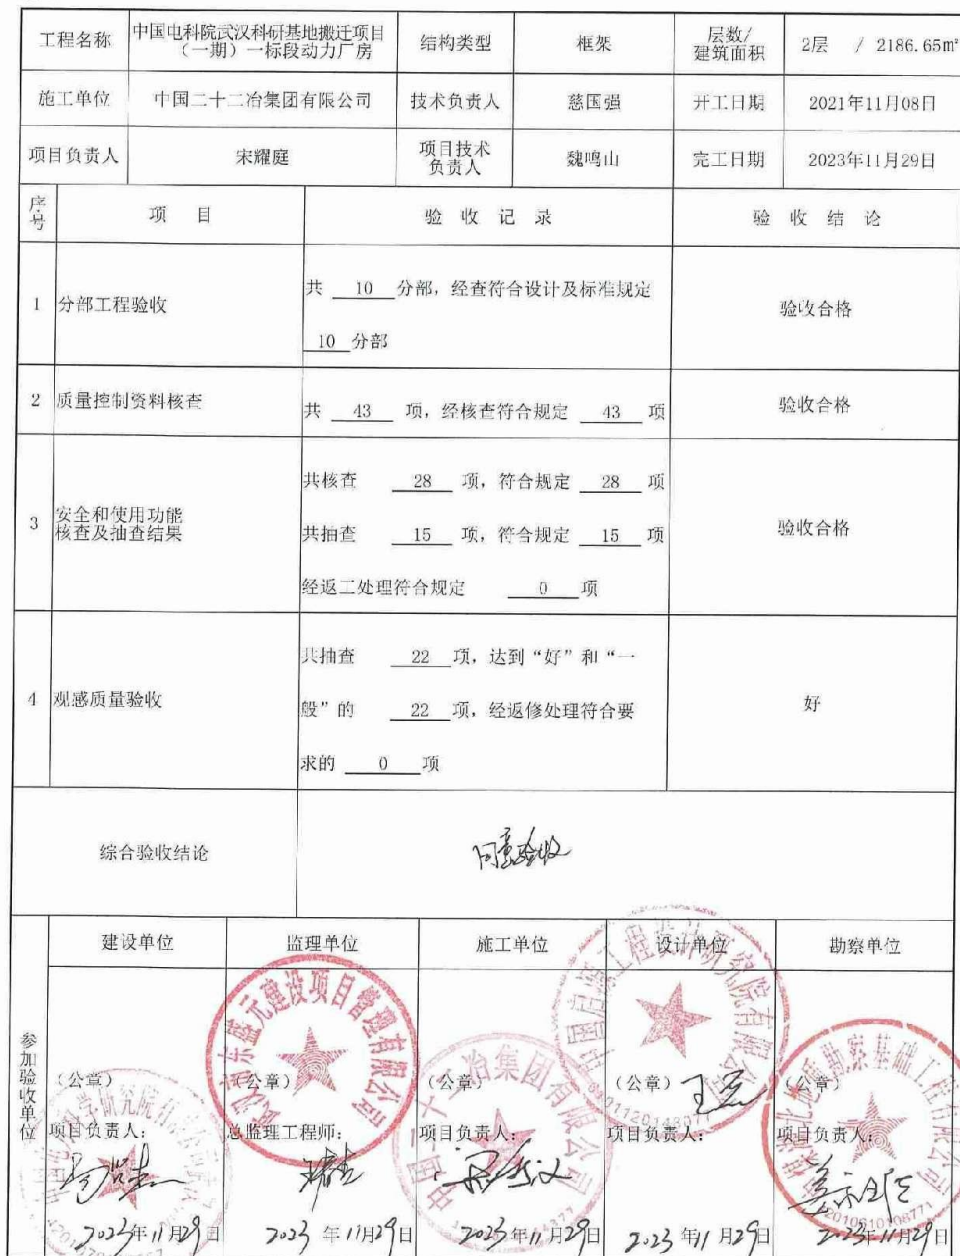 工程名称 中国电科院武汉科研基地搬迁项目（一期）一标段动力厂房 结构类型 框架 层数/建筑面积 2层 / 2186.65m²
施工单位 中国二十二冶集团有限公司 技术负责人 慈国强 开工日期 2021年11月08日
项目负责人 宋耀庭 项目技术负责人 魏鸣山 完工日期 2023年11月29日
序号 项 目 验 收 记 录 验 收 结 论
1 分部工程验收 共 10 分部，经查符合设计及标准规定 验收合格
10 分部
2 质量控制资料核查 共 43 项，经核查符合规定 43 项 验收合格
3 安全和使用功能
核查及抽查结果
共核查 28 项，符合规定 28 项
共抽查 15 项，符合规定 15 项 验收合格
经返工处理符合规定 0 项
4 观感质量验收
共抽查 22 项，达到“好”和“一
般”的 22 项，经返修处理符合要 好
求的 0 项
综合验收结论 同意验收
参加验收单位
建设单位 监理单位 施工单位 设计单位 勘察单位
（公章） （公章） （公章） （公章） （公章）
项目负责人： 总监理工程师： 项目负责人： 项目负责人： 项目负责人：
2023年11月29日 2023年11月29日 2023年11月29日 2023年11月29日 2023年11月29日